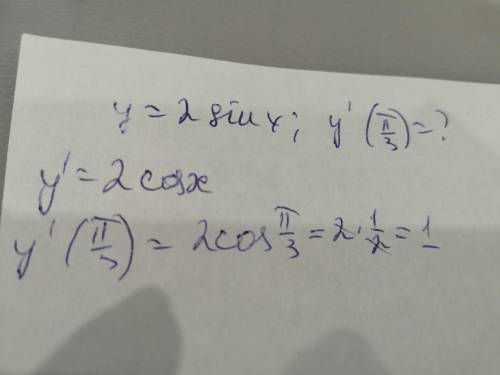 y = 2 sin x; y' (π/3) = ?
y' = 2 cos x
y' (π/3) = 2 cos π/3 = 2 · 1/2 = 1